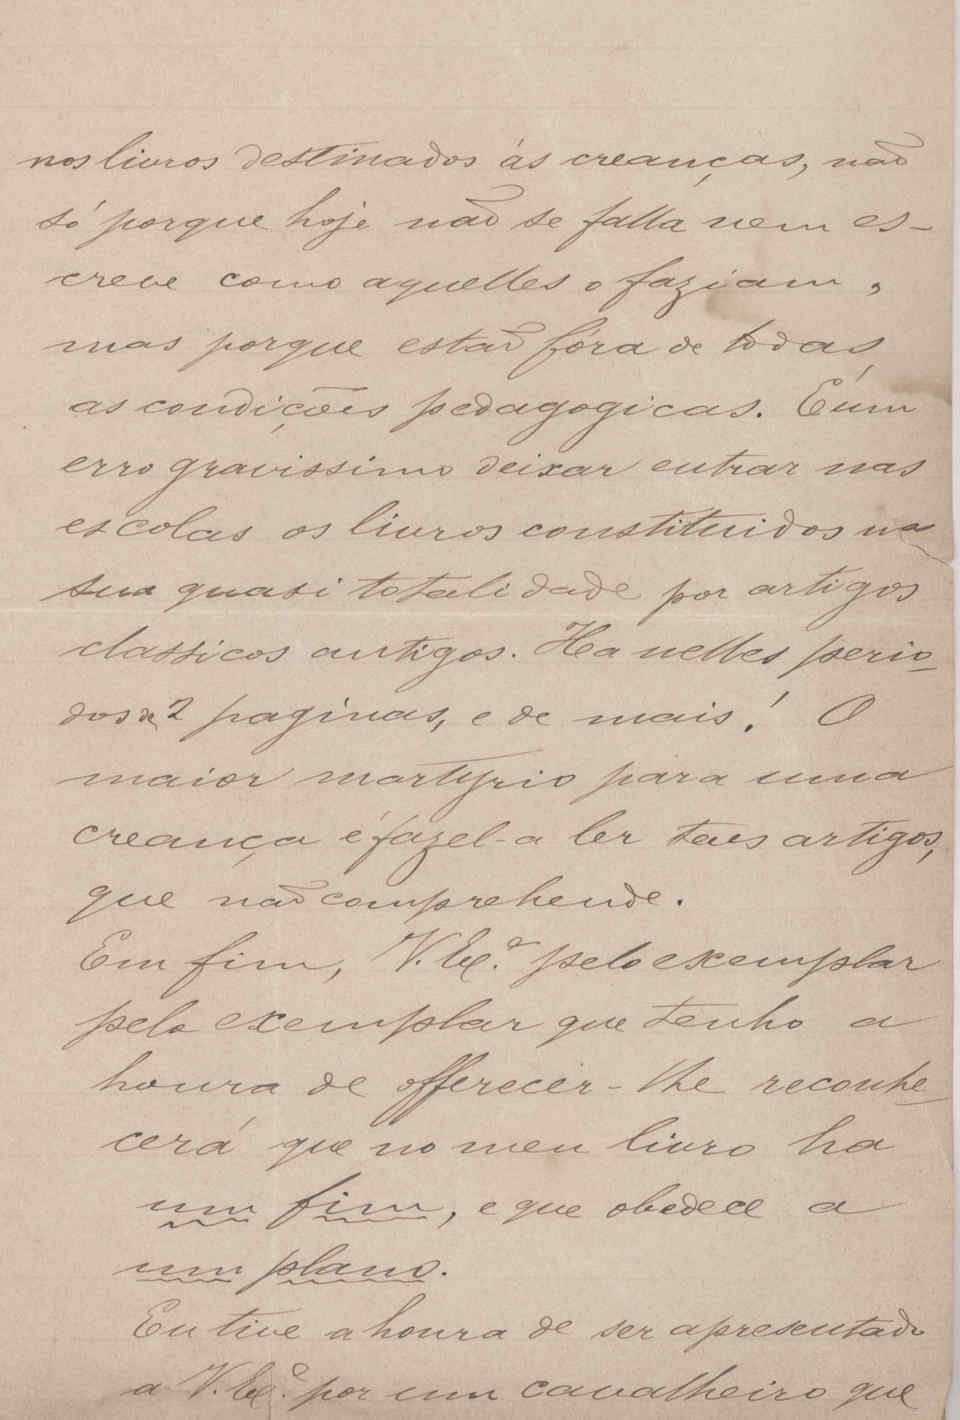 nos livros destinados ás creanças, não
só porque hoje não se falla nem es-
creve como aquelles o faziam,
mas porque estão fóra de todas
as condições pedagogicas. É um
erro gravissimo deixar entrar nas
escolas os livros constituidos na
sua quasi totalidade por artigos
classicos antigos. Ha nelles perio-
dos de 2 paginas, e de mais! O
maior martyrio para uma
creança é fazel-a ler taes artigos,
que não comprehende.
Em fim, V. Ex.ª pelo exemplar
pelo exemplar que tenho a
honra de offerecer-lhe reconhe-
cerá que no meu livro ha
um fim, e que obedece a
um plano.
Eu tive a honra de ser apresentado
a V. Ex.ª por um cavalheiro que